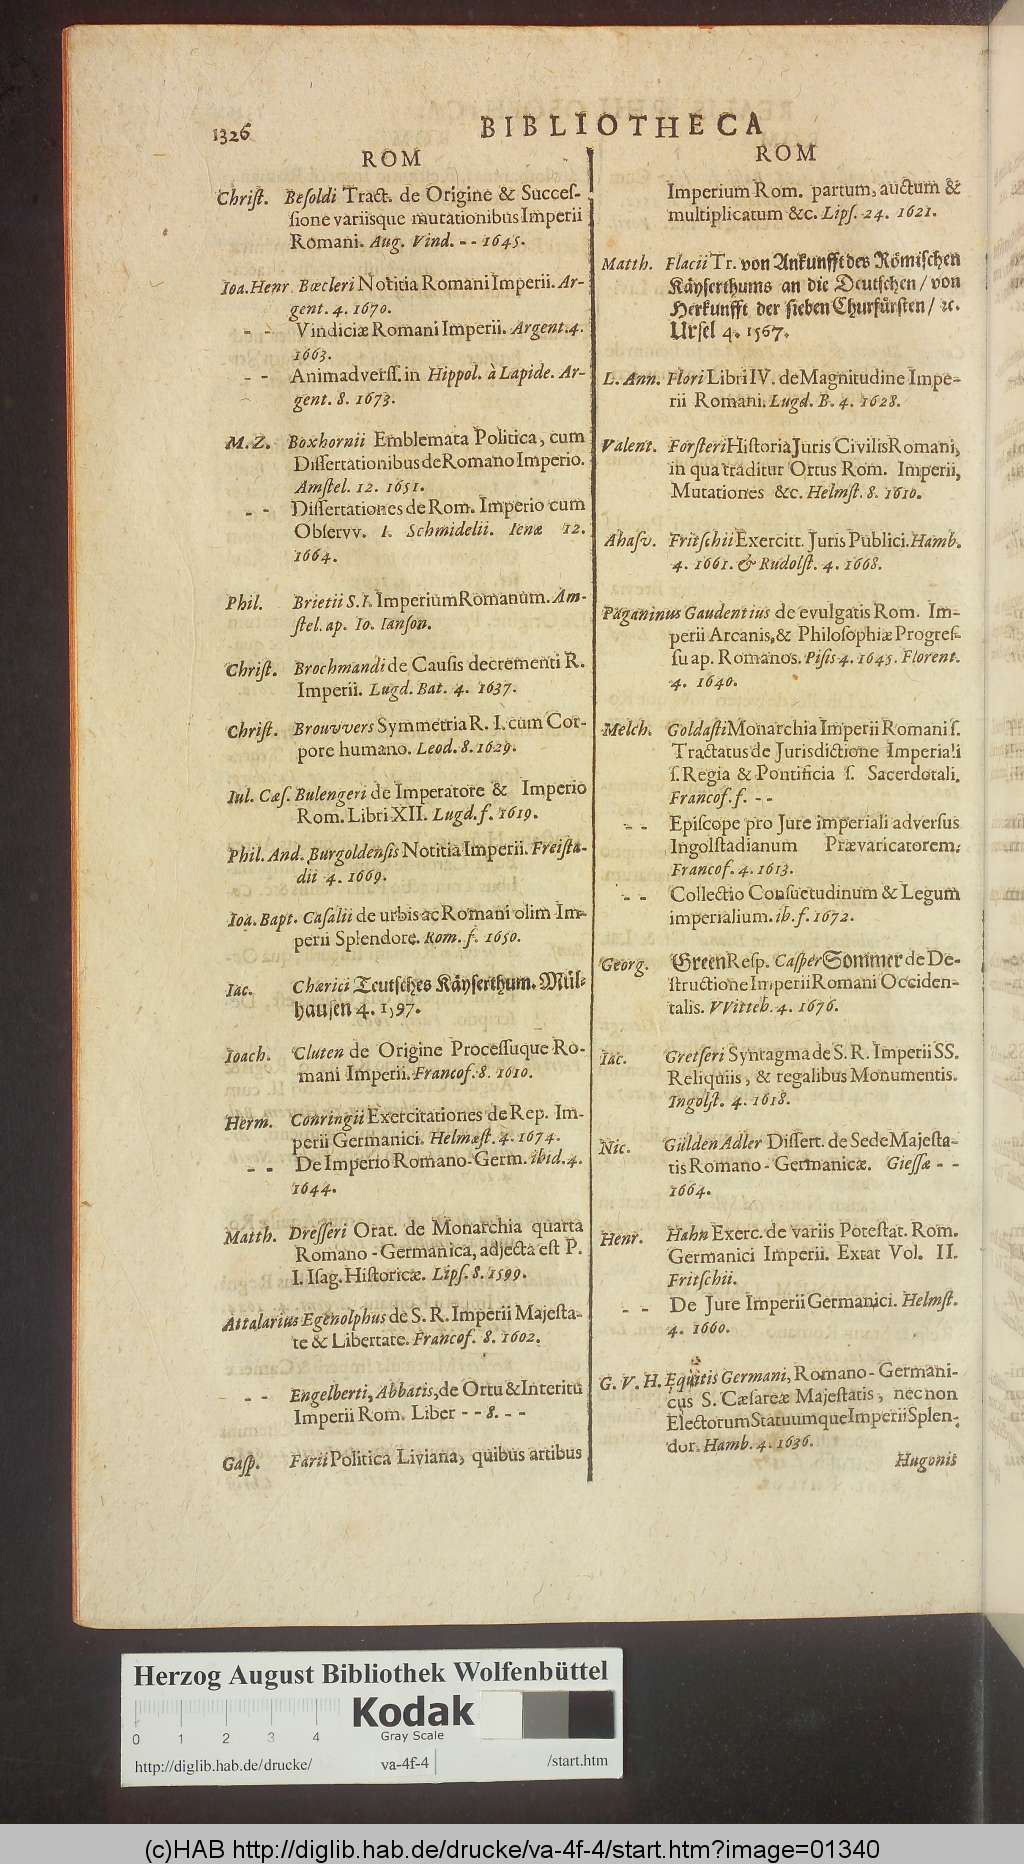 1326
BIBLIOTHECA
ROM
Christ. Besoldi Tract. de Origine & Succes-
sione variisque mutationibus Imperii
Romani. Aug. Vind. - - 1645.
Ioa. Henr. Bœcleri Notitia Romani Imperii. Ar-
gent. 4. 1670.
- - Vindiciæ Romani Imperii. Argent. 4.
1663.
- - Animadverss. in Hippol. à Lapide. Ar-
gent. 8. 1673.
M. Z. Boxhornii Emblemata Politica, cum
Dissertationibus de Romano Imperio.
Amstel. 12. 1651.
- - Dissertationes de Rom. Imperio cum
Observv. I. Schmidelii. Ienæ 12.
1664.
Phil. Brietii S. I. Imperium Romanum. Am-
stel. ap. Io. Ianson.
Christ. Brochmandi de Causis decrementi R.
Imperii. Lugd. Bat. 4. 1637.
Christ. Brouvvers Symmetria R. I. cum Cor-
pore humano. Leod. 8. 1629.
Iul. Cæs. Bulengeri de Imperatore & Imperio
Rom. Libri XII. Lugd. f. 1619.
Phil. And. Burgoldensis Notitia Imperii. Freista-
dii 4. 1669.
Ioa. Bapt. Casalii de urbis ac Romani olim Im-
perii Splendore. Rom. f. 1650.
Iac. Chærici Teutsches Käyserthum. Mül-
hausen 4. 1597.
Ioach. Cluten de Origine Processuque Ro-
mani Imperii. Francof. 8. 1610.
Herm. Conringii Exercitationes de Rep. Im-
perii Germanici. Helmæst. 4. 1674.
- - De Imperio Romano-Germ. ibid. 4.
1644.
Matth. Dresseri Orat. de Monarchia quarta
Romano-Germanica, adjecta est P.
I. Isag. Historicæ. Lips. 8. 1599.
Attalarius Egenolphus de S. R. Imperii Majesta-
te & Libertate. Francof. 8. 1602.
- - Engelberti, Abbatis, de Ortu & Interitu
Imperii Rom. Liber - - 8. - -
Gasp. Farii Politica Liviana, quibus artibus
ROM
Imperium Rom. partum, auctum &
multiplicatum &c. Lips. 24. 1621.
Matth. Flacii Tr. von Ankunfft des Römischen
Käyserthums an die Deutschen / von
Herkunfft der sieben Churfürsten / ꝛc.
Ursel 4. 1567.
L. Ann. Flori Libri IV. de Magnitudine Impe-
rii Romani. Lugd. B. 4. 1628.
Valent. Forsteri Historia Juris Civilis Romani,
in qua traditur Ortus Rom. Imperii,
Mutationes &c. Helmst. 8. 1610.
Ahasv. Fritschii Exercitt. Juris Publici. Hamb.
4. 1661. & Rudolst. 4. 1668.
Paganinus Gaudentius de evulgatis Rom. Im-
perii Arcanis, & Philosophiæ Progres-
su ap. Romanos. Pisis 4. 1645. Florent.
4. 1640.
Melch. Goldasti Monarchia Imperii Romani s.
Tractatus de Jurisdictione Imperiali
s. Regia & Pontificia s. Sacerdotali.
Francof. f. - -
- - Episcope pro Jure imperiali adversus
Ingolstadianum Prævaricatorem.
Francof. 4. 1613.
- - Collectio Consuetudinum & Legum
imperialium. ib. f. 1672.
Georg. Green Resp. Casper Sommer de De-
structione Imperii Romani Occiden-
talis. VVitteb. 4. 1676.
Iac. Gretseri Syntagma de S. R. Imperii SS.
Reliquiis, & regalibus Monumentis.
Ingolst. 4. 1618.
Nic. Gülden Adler Dissert. de Sede Majesta-
tis Romano-Germanicæ. Giessæ - -
1664.
Henr. Hahn Exerc. de variis Potestat. Rom.
Germanici Imperii. Extat Vol. II.
Fritschii.
- - De Jure Imperii Germanici. Helmst.
4. 1660.
G. V. H. Equitis Germani, Romano-Germani-
cus S. Cæsareæ Majestatis, nec non
Electorum Statuumque Imperii Splen-
dor. Hamb. 4. 1636.
Hugonis
Herzog August Bibliothek Wolfenbüttel
Kodak
Gray Scale
0 1 2 3 4
http://diglib.hab.de/drucke/ va-4f-4 /start.htm
(c)HAB http://diglib.hab.de/drucke/va-4f-4/start.htm?image=01340